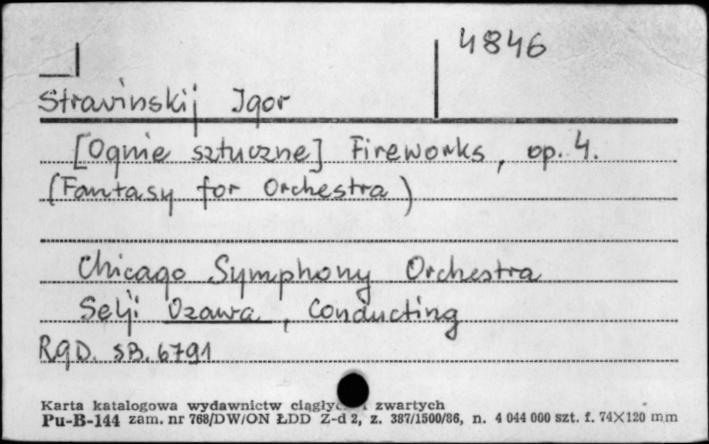 4846
Stravinskij Igor
[Ognie sztuczne] Fireworks, op. 4.
(Fantasy for Orchestra)
Chicago Symphony Orchestra
Seiji Ozawa, Conducting
RQD. SB. 6791
Karta katalogowa wydawnictw ciągłych i zwartych
Pu-B-144 zam. nr 768/DW/ON ŁDD Z-d 2, z. 387/1500/86, n. 4 044 000 szt. f. 74×120 mm